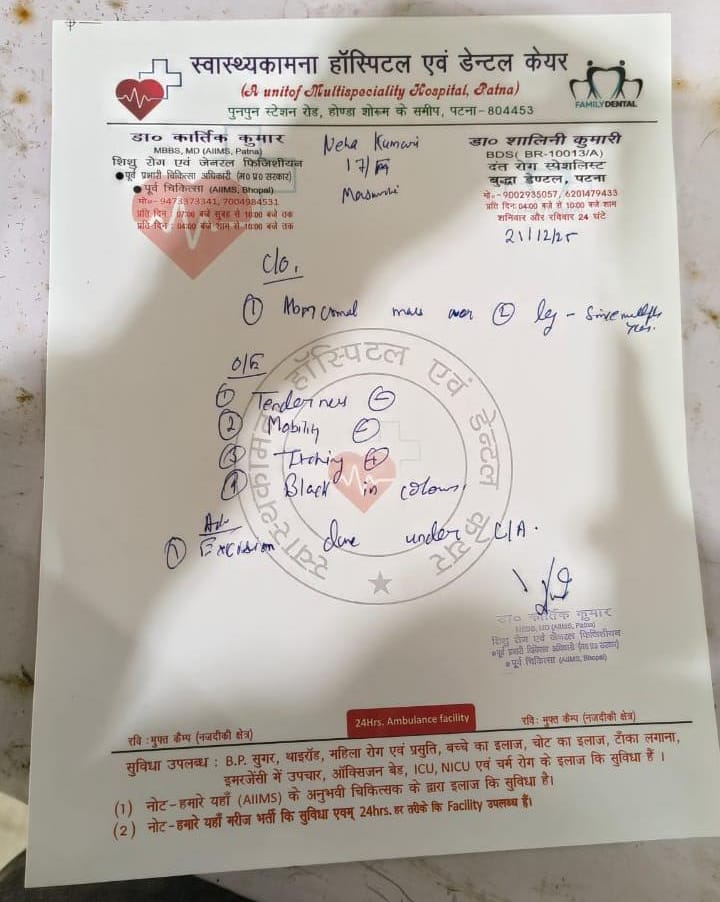 स्वास्थ्यकामना हॉस्पिटल एवं डेन्टल केयर
(A unitof Multispeciality Hospital, Patna)
पुनपुन स्टेशन रोड, होण्डा शोरूम के समीप, पटना-804453
FAMILYDENTAL
डा० कार्तिक कुमार
MBBS, MD (AIIMS, Patna)
शिशु रोग एवं जेनरल फिजिशीयन
●पूर्व प्रभारी चिकित्सा अधिकारी (म०प्र० सरकार)
● पूर्व चिकित्सा (AIIMS, Bhopal)
मो०- 9473373341, 7004984531
प्रति दिन : 07:00 बजे सुबह से 10:00 बजे तक
प्रति दिन : 04:00 बजे शाम से 10:00 बजे तक
Neha Kumari
17/F
डा० शालिनी कुमारी
BDS( BR-10013/A)
दंत रोग स्पेशलिस्ट
बुद्धा डेण्टल, पटना
मो०-9002935057, 6201479433
प्रति दिन: 04:00 बजे से 10:00 बजे शाम
शनिवार और रविवार 24 घंटे
21/12/25
C/O,
① Abnormal mass over Ⓛ leg - Since multiple
O/E
① Tenderness ⊖
② Mobility ⊖
③ Itching ⊕
④ Black in colour,
Adv
① Excision done under L/A.
स्वास्थ्यकामना हॉस्पिटल एवं डेन्टल केयर
डा० कार्तिक कुमार
MBBS, MD (AIIMS, Patna)
शिशु रोग एवं जेनरल फिजिशीयन
●पूर्व प्रभारी चिकित्सा अधिकारी (म०प्र० सरकार)
● पूर्व चिकित्सा (AIIMS, Bhopal)
24Hrs. Ambulance facility
रवि : मुफ्त कैम्प (नजदीकी क्षेत्र)
रवि : मुफ्त कैम्प (नजदीकी क्षेत्र)
सुविधा उपलब्ध : B.P. सुगर, थाइरॉड, महिला रोग एवं प्रसुति, बच्चे का इलाज, चोट का इलाज, टाँका लगाना,
इमरजेंसी में उपचार, ऑक्सिजन बेड, ICU, NICU एवं चर्म रोग के इलाज कि सुविधा हैं ।
(1) नोट-हमारे यहाँ (AIIMS) के अनुभवी चिकित्सक के द्वारा इलाज कि सुविधा है।
(2) नोट-हमारे यहाँ मरीज भर्ती कि सुविधा एवम् 24hrs. हर तरीके कि Facility उपलब्ध हैं।